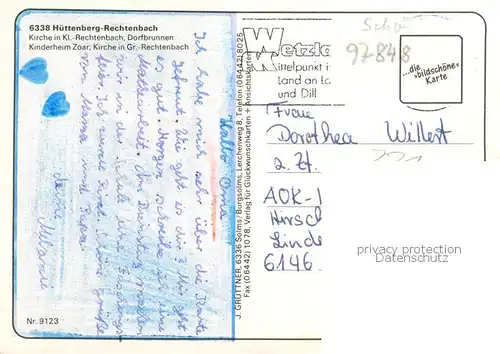 6338 Hüttenberg-Rechtenbach
Kirche in Kl.-Rechtenbach, Dorfbrunnen
Kinderheim Zoar, Kirche in Gr.-Rechtenbach
Hallo Oma
Ich habe mich sehr über die Karte
gefreut. Wie geht es dir? Mir geht
es gut. Morgen schreibe ich eine
Mathearbeit. Am Dienstag machen
wir in der Schule
von Mama und Papa
deine
Nr. 9123
J. GRÜTTNER, 6336 Solms/Burgsolms, Lerchenweg 8, Telefon (06442) 8025
Fax (06442) 1078, Verlag für Glückwunschkarten + Ansichtskarten
Wetzla
Mittelpunkt i
land an La
und Dill
97848
...die
»bildschöne«
Karte
Frau
Dorothea Willert
z. Zt.
AOK-
Hirsch
Linde
6146
privacy protection
Datenschutz